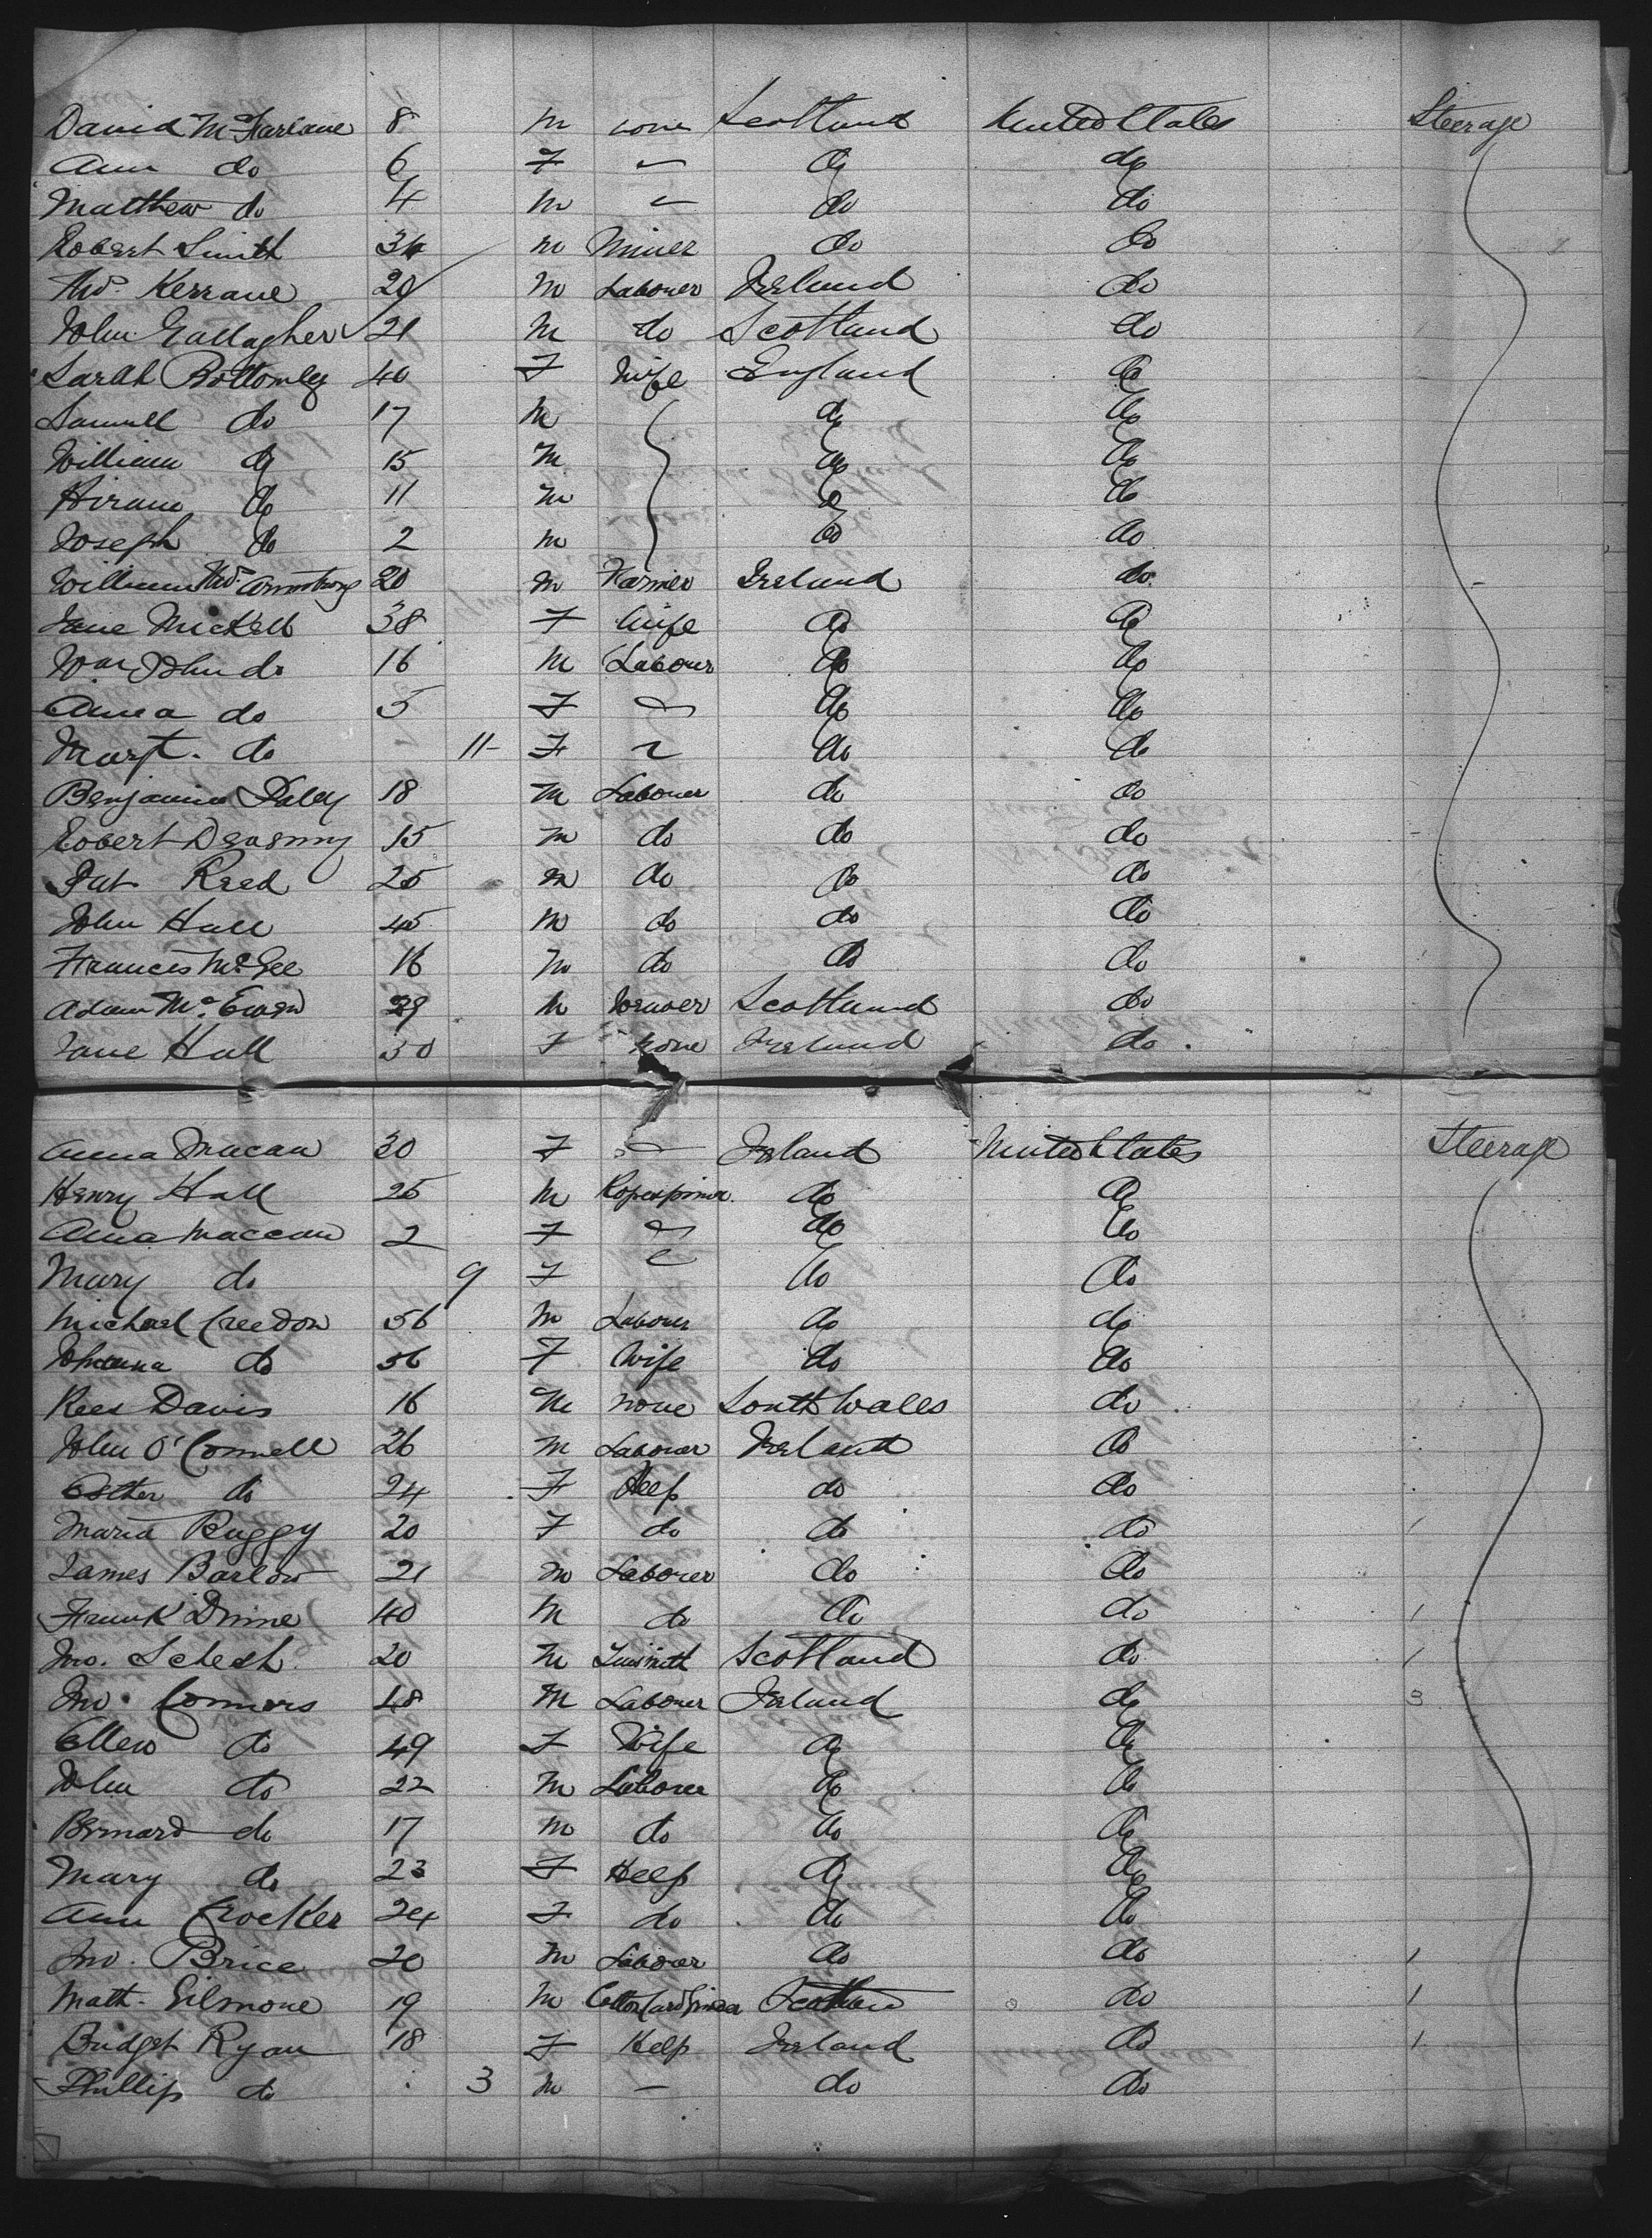 David McFarlane 8 M none Scotland United States Steerage
Ann do 6 F " do do
Matthew do 4 M " do do
Robert Smith 34 M Miner do do
Thos. Kerrane 20 M Laborer Ireland do
John Gallagher 21 M do Scotland do
Sarah Bottomley 40 F Wife England do
Samuell do 17 M do do
William do 15 M do do
Hiram do 11 M do do
Joseph do 2 M do do
William Thos Armstrong 20 M Farmer Ireland do
Jane 38 F Wife do do
Wm John do 16 M Labour do do
Anna do 5 F " do do
Margt. do 11 F " do do
Benjamin Daley 18 M Labourer do do
Robert Devenny 15 M do do do
Pat Reed 25 M do do do
John Hall 45 M do do do
Francis McGee 16 M do do do
Adam McEwen 29 M Weaver Scotland do
Jane Hall 30 F none Ireland do
Anna Macan 30 F " Ireland United States Steerage
Henry Hall 25 M Ropespiner do do
Anna Maccan 2 F " do do
Mary do 9 F " do do
Michael Creedon 56 M Labour do do
Johanna do 56 F Wife do do
Rees Davis 16 M none South Wales do
John O'Connell 26 M Laborer Ireland do
Esther do 24 F Help do do
Maria Ruggy 20 F do do do
James Barlow 21 M Laborer do do
Frank 40 M do do do 1
Jno. 20 M Tinsmith Scotland do 1
Jno. Connors 48 M Laborer Ireland do 3
Ellen do 49 F Wife do do
John do 22 M Laborer do do
Bernard do 17 M do do do
Mary do 23 F Help do do
Ann Crocker 24 F do do do
Jno. Brice 20 M Laborer do do 1
Math. Gilmone 19 M Cotton Card Grinder Scotland do 1
Bridget Ryan 18 F Help Ireland do 1
Phillip do 3 M — do do